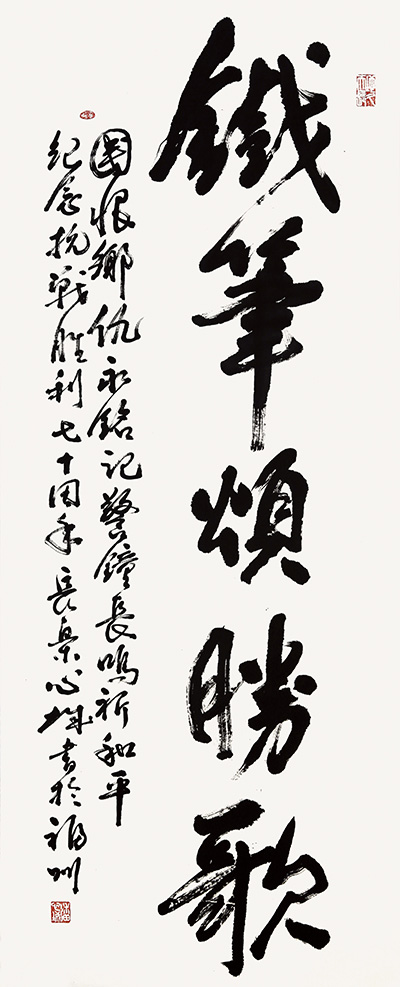 鐵筆頌勝歌
國恨鄉仇永銘記警鐘長鳴祈和平
紀念抗戰勝利七十周年長樂心城書於福州